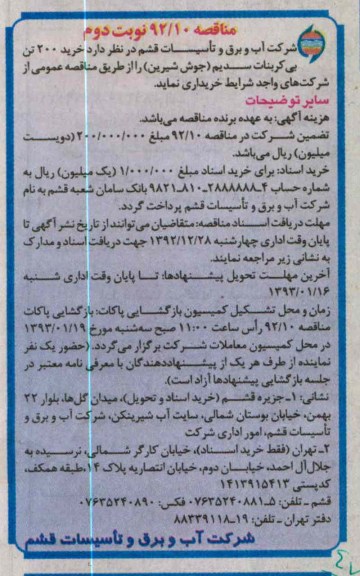 مناقصه ۹۲/۱۰ نوبت دوم
شرکت آب و برق و تأسیسات قشم در نظر دارد خرید ۲۰۰ تن
بی‌کربنات سدیم (جوش شیرین) را از طریق مناقصه عمومی از
شرکت‌های واجد شرایط خریداری نماید.
سایر توضیحات
هزینه آگهی: به عهده برنده مناقصه می‌باشد.
تضمین شرکت در مناقصه ۹۲/۱۰ مبلغ ۲۰۰/۰۰۰/۰۰۰ (دویست
میلیون) ریال می‌باشد.
خرید اسناد: برای خرید اسناد مبلغ ۱/۰۰۰/۰۰۰ (یک میلیون) ریال به
شماره حساب ۴_۲۸۸۸۸۸۸_۸۱۰_۹۸۲۱ بانک سامان شعبه قشم به نام
شرکت آب و برق و تأسیسات قشم پرداخت گردد.
مهلت دریافت اسناد مناقصه: متقاضیان می‌توانند از تاریخ نشر آگهی تا
پایان وقت اداری چهارشنبه ۱۳۹۲/۱۲/۲۸ جهت دریافت اسناد و مدارک
به نشانی زیر مراجعه نمایند.
آخرین مهلت تحویل پیشنهادها: تا پایان وقت اداری شنبه
۱۳۹۳/۰۱/۱۶
زمان و محل تشکیل کمیسیون بازگشایی پاکات: بازگشایی پاکات
مناقصه ۹۲/۱۰ رأس ساعت ۱۱:۰۰ صبح سه‌شنبه مورخ ۱۳۹۳/۰۱/۱۹
در محل کمیسیون معاملات شرکت برگزار می‌گردد. (حضور یک نفر
نماینده از طرف هر یک از پیشنهاددهندگان با معرفی نامه معتبر در
جلسه بازگشایی پیشنهادها آزاد است).
نشانی: ۱_ جزیره قشم (خرید اسناد و تحویل)، میدان گل‌ها، بلوار ۲۲
بهمن، خیابان بوستان شمالی، سایت آب شیرینکن، شرکت آب و برق و
تأسیسات قشم، امور اداری شرکت
۲_ تهران (فقط خرید اسناد)، خیابان کارگر شمالی، نرسیده به
جلال‌آل احمد، خیابان دوم، خیابان انتصاریه پلاک ۱۴، طبقه همکف،
کدپستی ۱۴۱۳۹۱۵۴۱۳
قشم _ تلفن: ۵_۰۷۶۳۵۲۴۰۸۸۱ فکس: ۰۷۶۳۵۲۴۰۸۹۰
دفتر تهران _ تلفن: ۱۹_۸۸۳۳۹۱۱۸
شرکت آب و برق و تأسیسات قشم